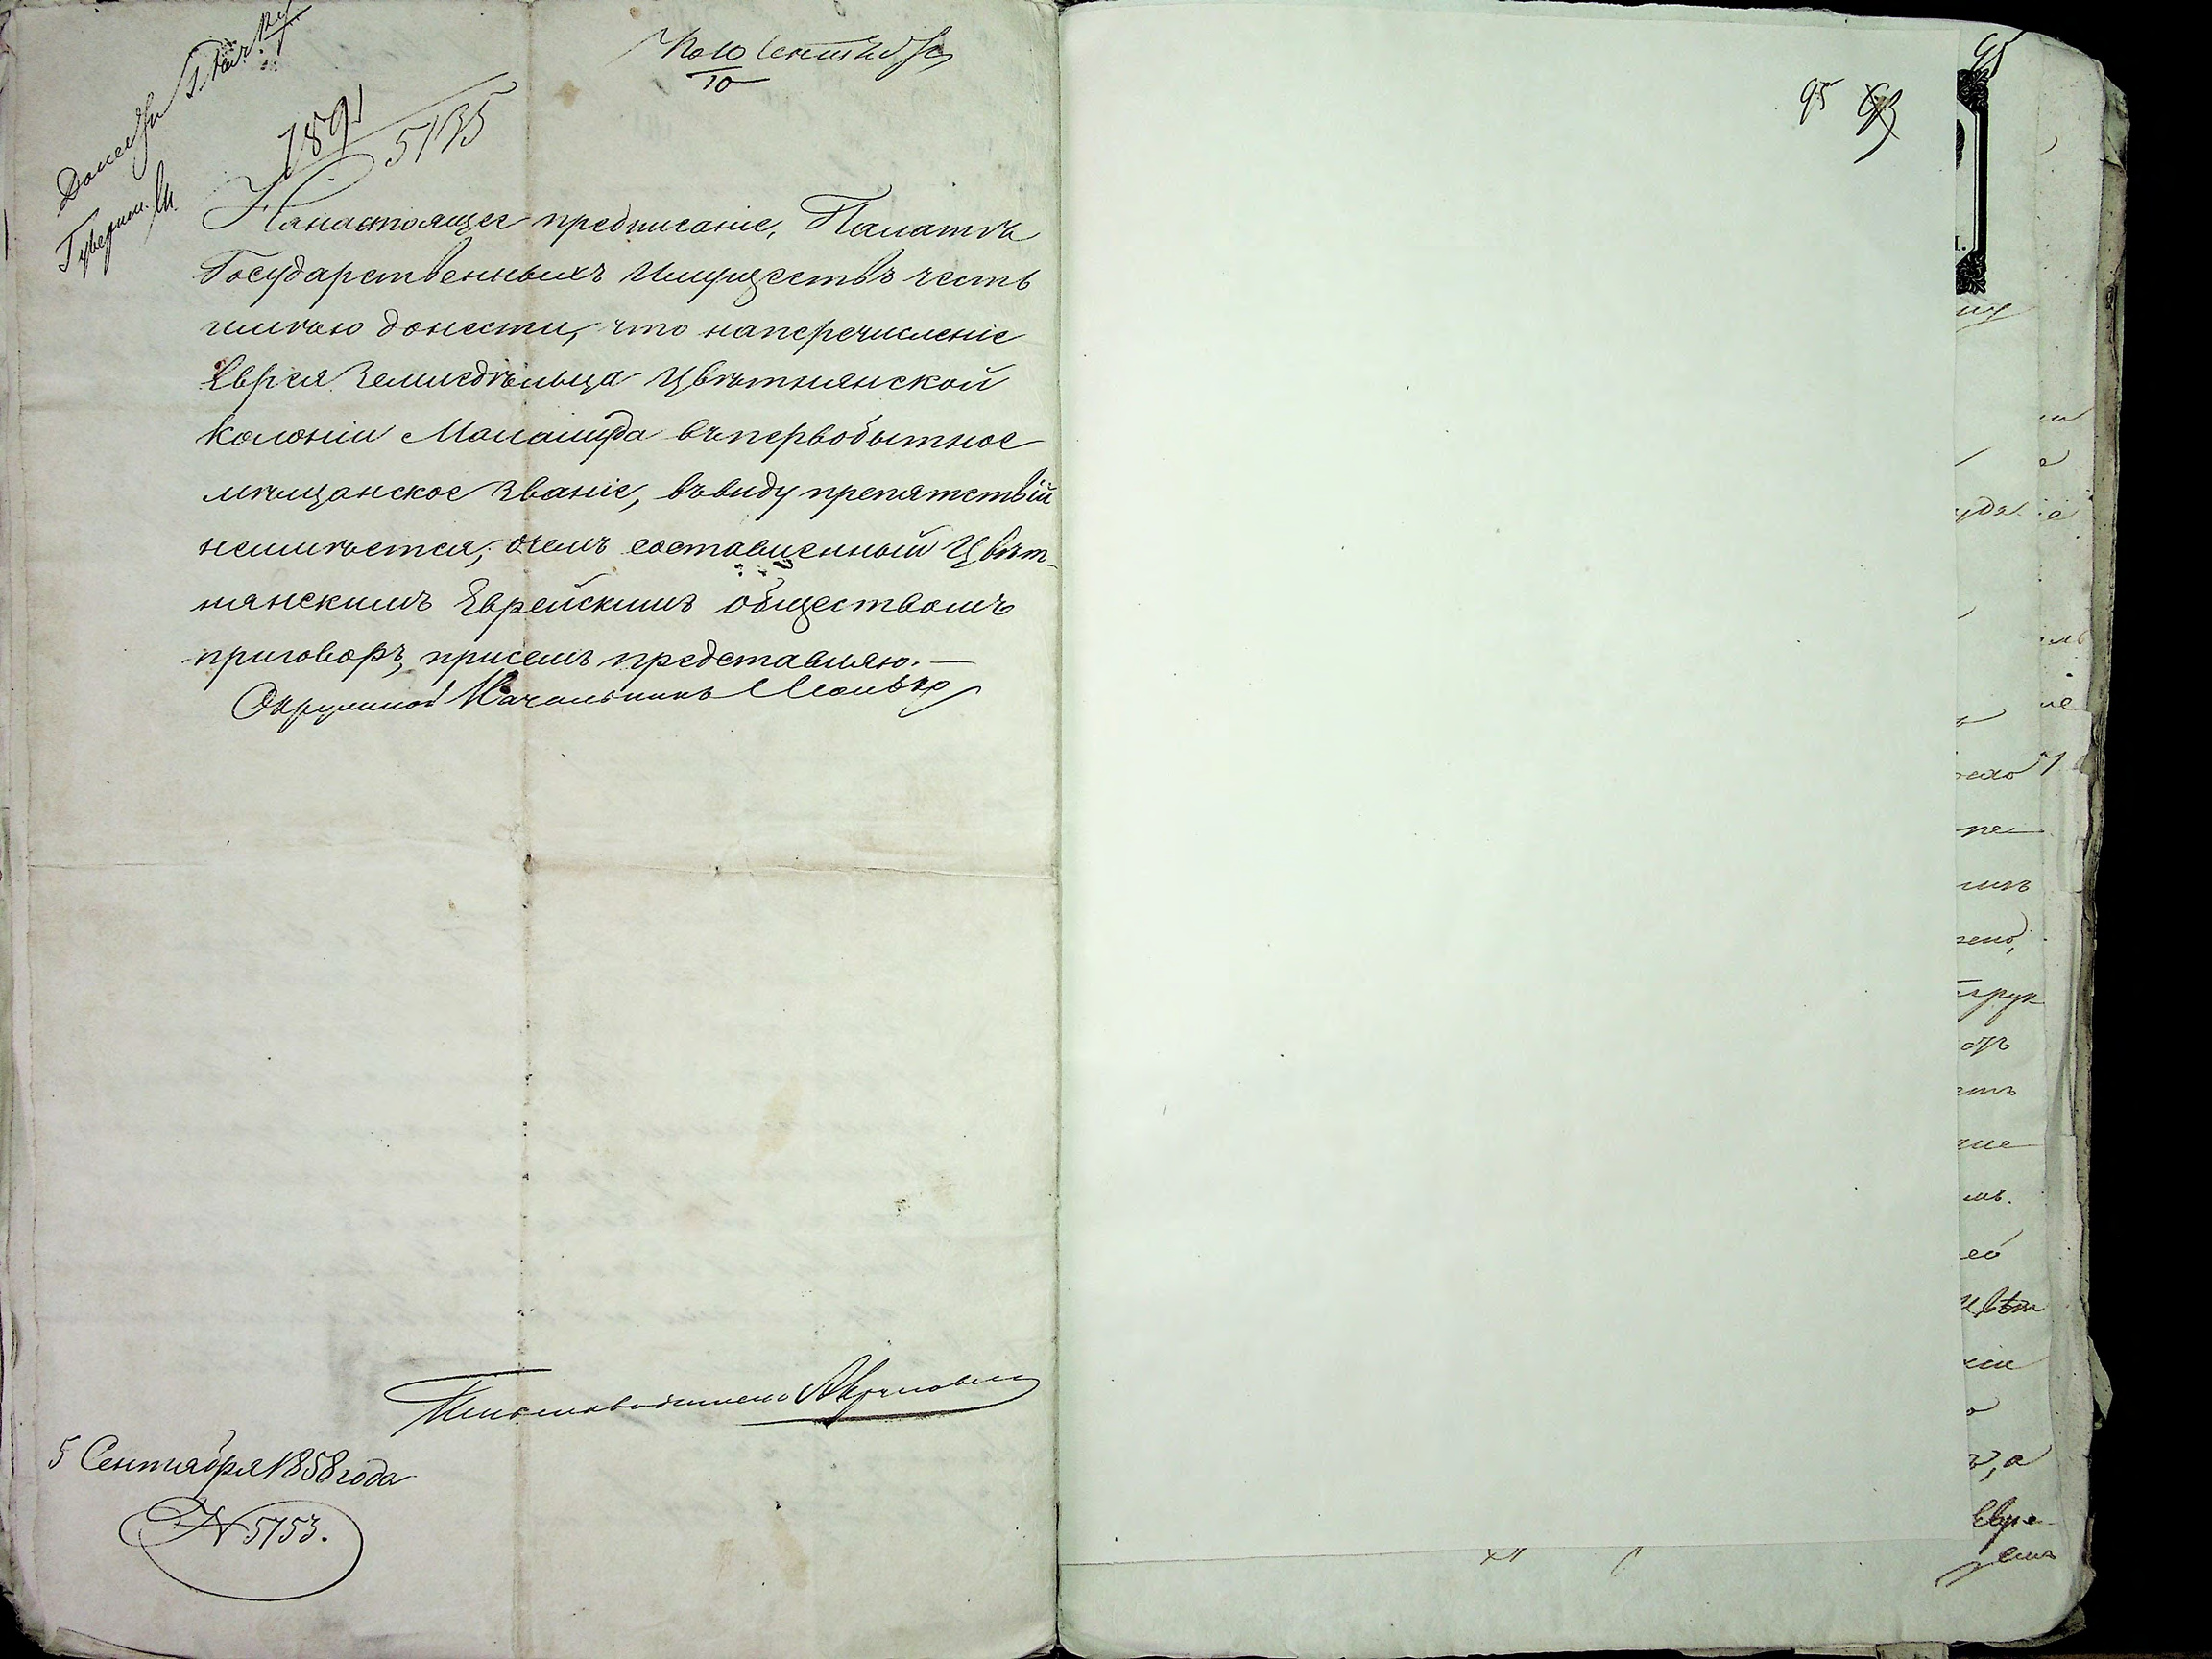 10 Сентября
10
1891
5135
Губерн.
На настоящее предписаніе, Палатѣ
Государственныхъ Имуществъ честь
имѣю донести, что на перечисленіе
Еврея Земледѣльца Цвѣтнянской
Колоніи Маламуда въ первобытное
мѣщанское званіе, въ виду препятствій
не имѣется; о чемъ составленный Цвѣт-
нянскимъ Еврейскимъ обществомъ
приговоръ, при семъ представляю.—
Окружной Начальникъ
Письмоводитель
5 Сентября 1858 года
№ 5753.
95
95